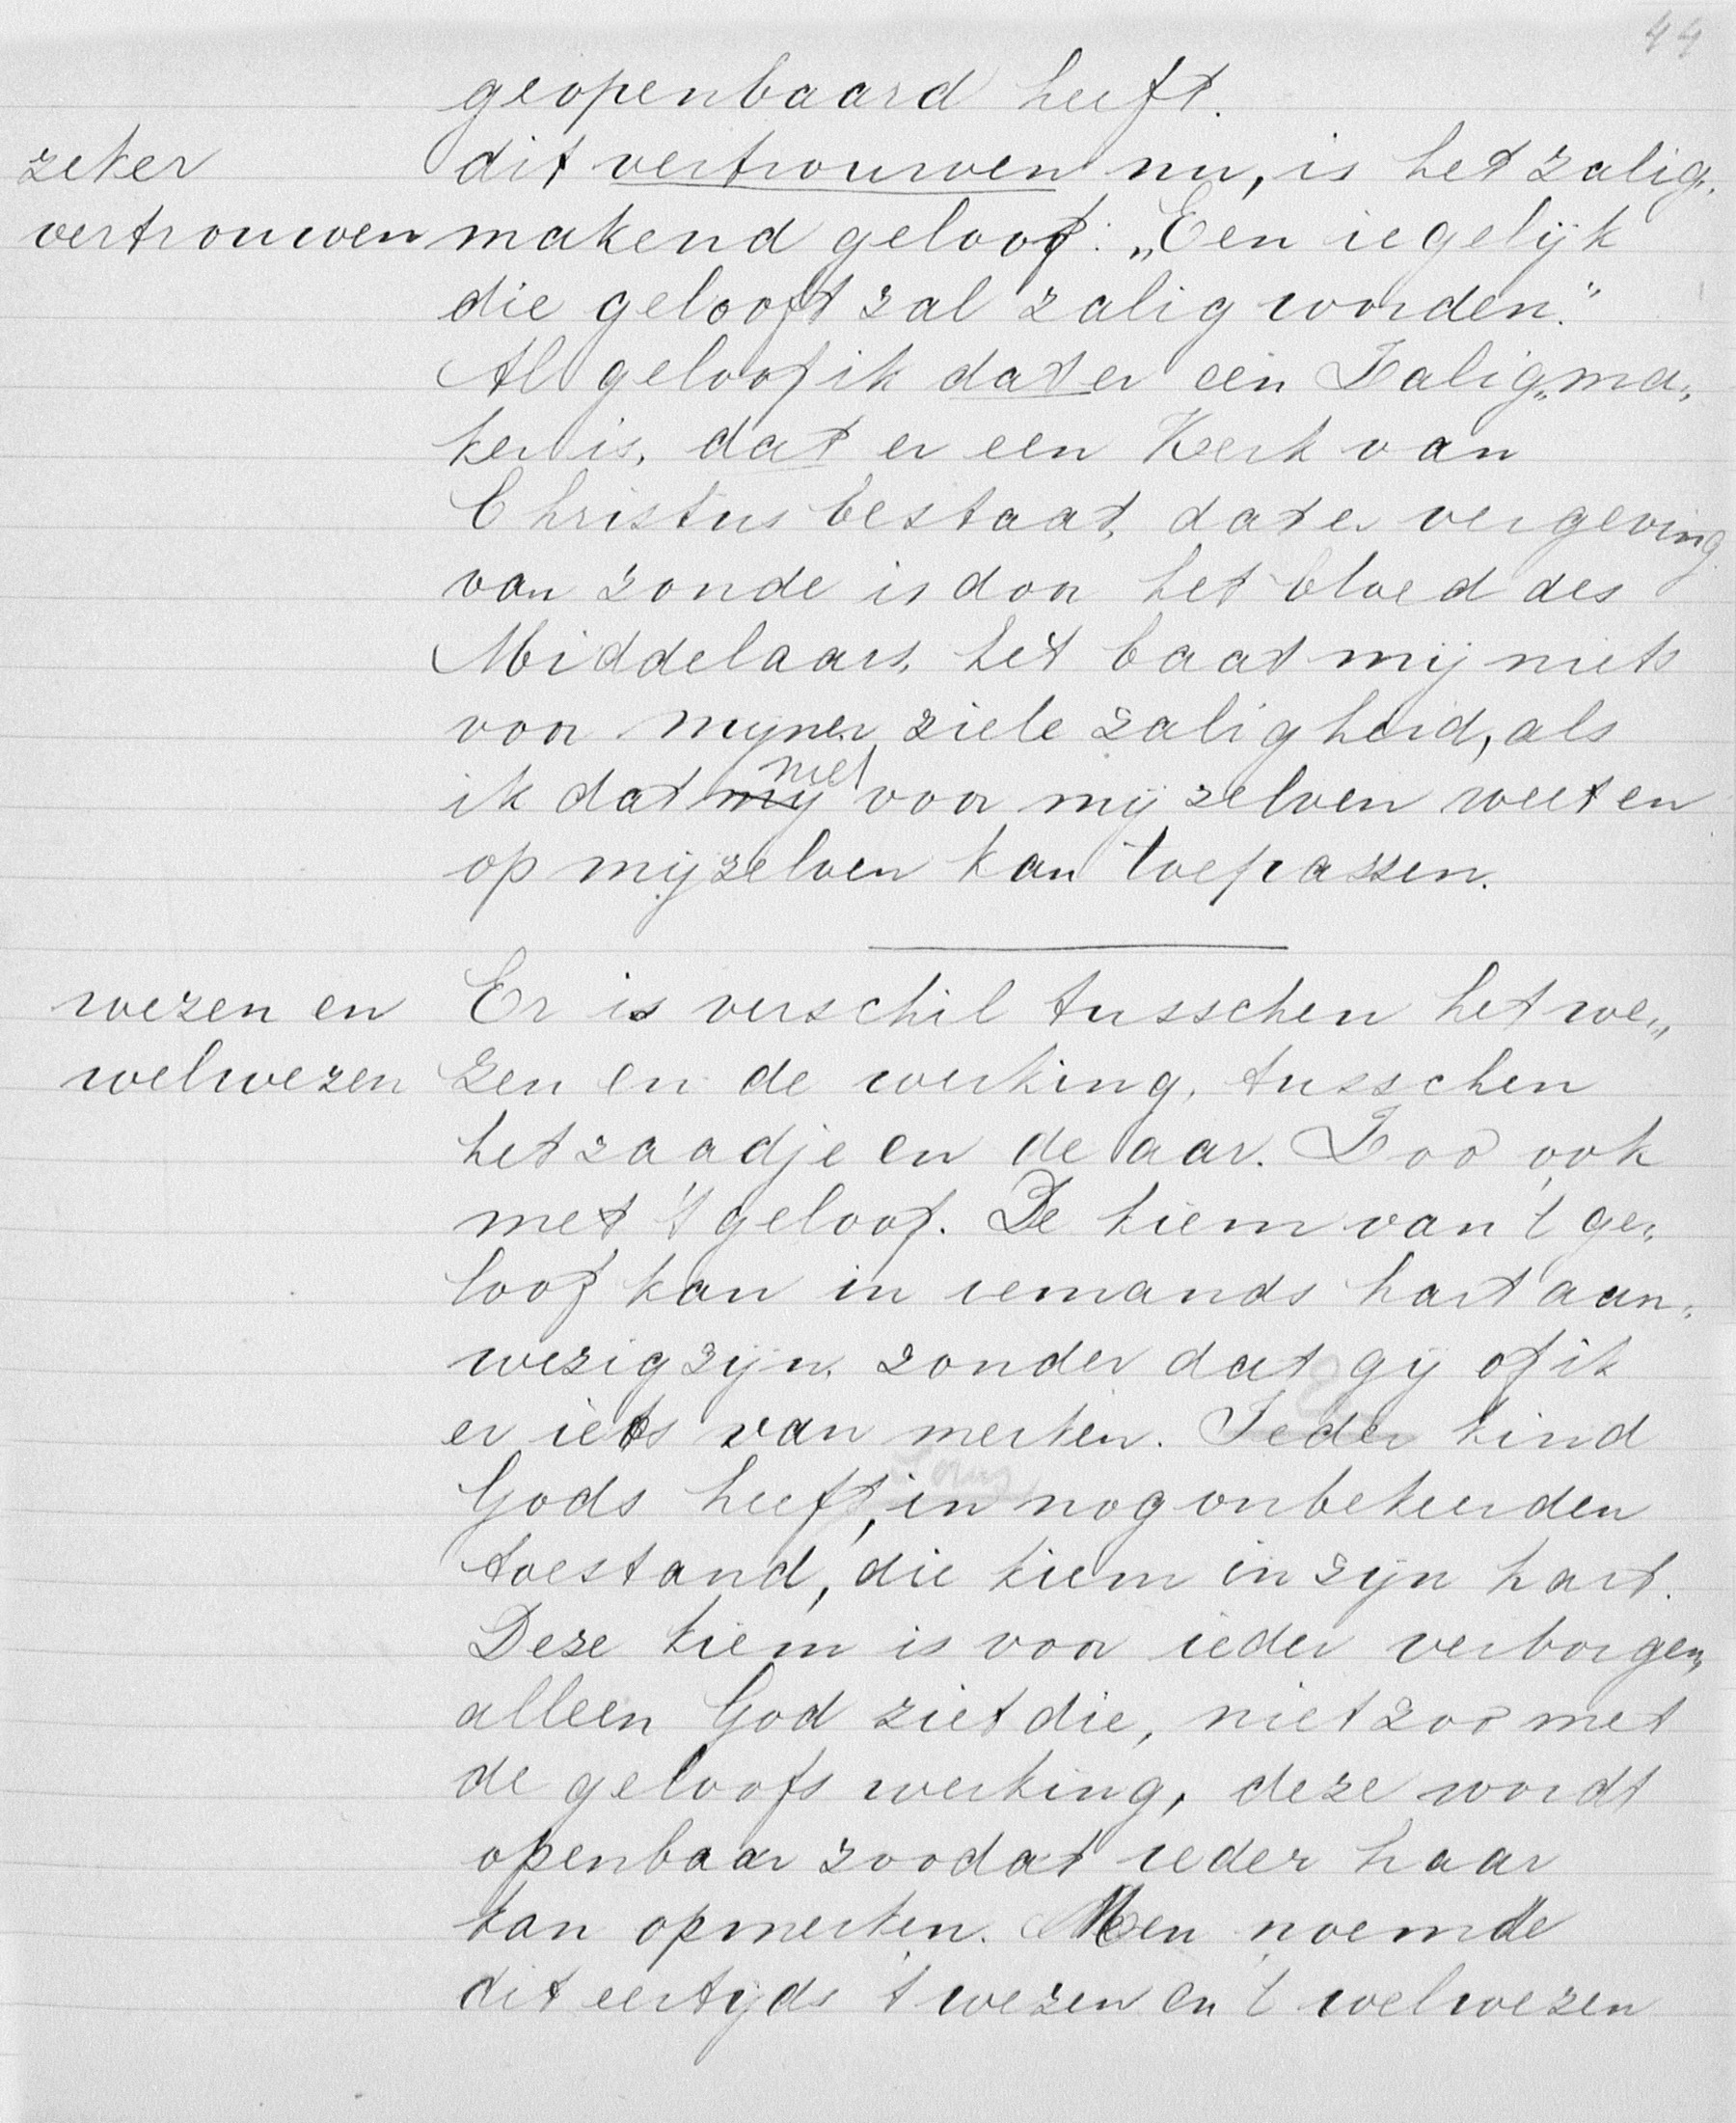 44
geopenbaard heeft.
zeker dit vertrouwen nu, is het zalig„
vertrouwen makend geloof: „Een iegelijk
die gelooft zal zalig worden."
Al geloof ik dat er een Zalig„ma„
ker is, dat er een Kerk van
Christus bestaat, dat er vergeving
van zonde is door het bloed des
Middelaars, het baat mij niets
voor mijner ziele zaligheid, als
niet
ik dat mij voor mij zelven weet en
op mijzelven kan toepassen.
wezen en Er is verschil tusschen het we„
welwezen zen en de werking, tusschen
het zaadje en de aar. Zoo ook
met 't geloof. De kiem van 't ge„
loof kan in iemands hart aan„
wezig zijn, zonder dat gij of ik
er iets van merken. Ieder kind
Gods heeft, in nog onbekeerden
toestand, die kiem in zijn hart.
Deze kiem is voor ieder verborgen,
alleen God ziet die, niet zoo met
de geloofs werking, deze wordt
openbaar zoodat ieder haar
kan opmerken. Men noemde
dit eertijds 't wezen en 't welwezen